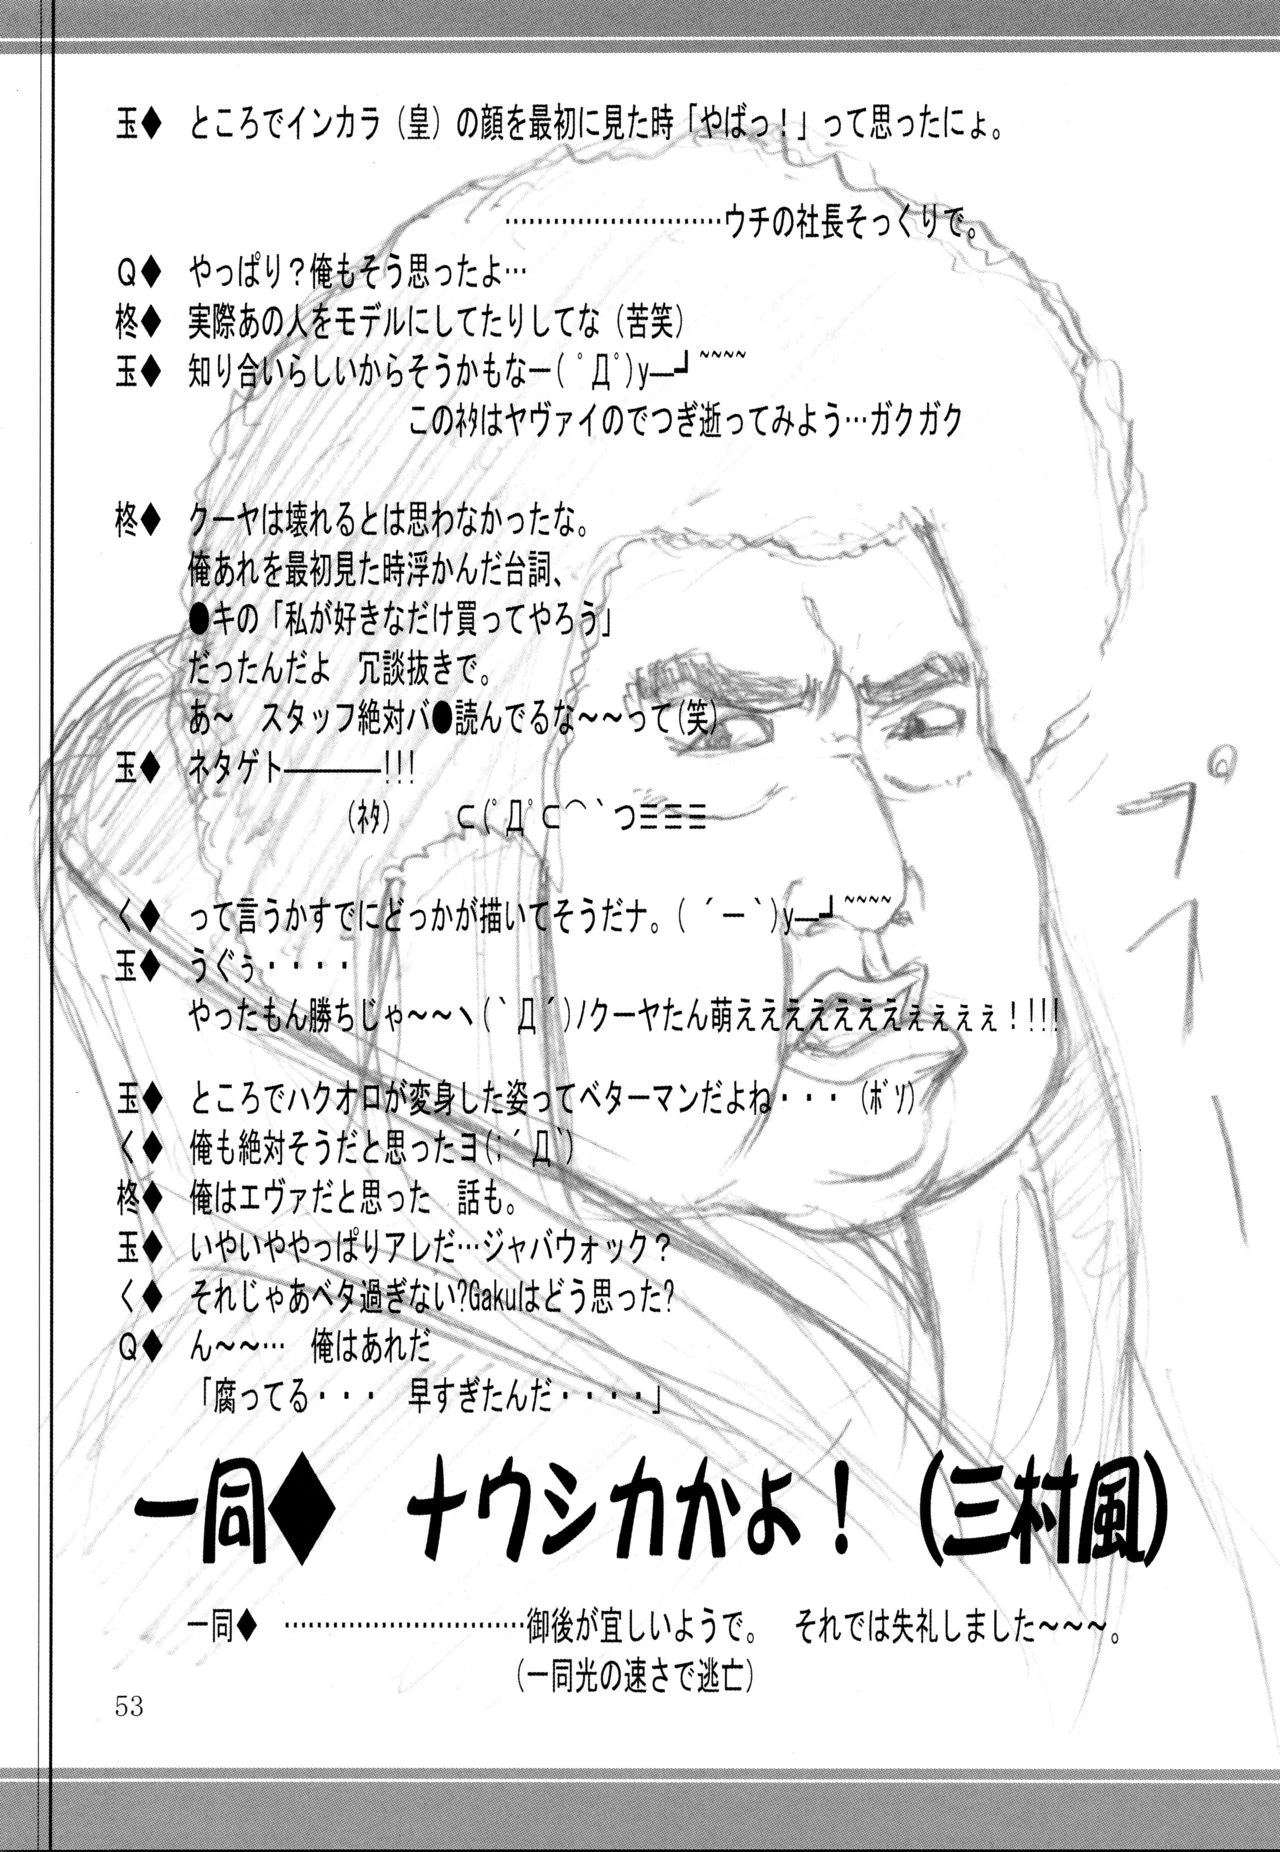 玉◆ ところでインカラ（皇）の顔を最初に見た時「やばっ！」って思ったにょ。
…………………………ウチの社長そっくりで。
Ｑ◆ やっぱり？俺もそう思ったよ…
柊◆ 実際あの人をモデルにしてたりしてな（苦笑）
玉◆ 知り合いらしいからそうかもなー( ﾟДﾟ)y─┛~~~~
このﾈﾀはヤヴァイのでつぎ逝ってみよう…ガクガク
柊◆ クーヤは壊れるとは思わなかったな。
俺あれを最初見た時浮かんだ台詞、
●キの「私が好きなだけ買ってやろう」
だったんだよ　冗談抜きで。
あ～　スタッフ絶対バ●読んでるな～～って(笑)
玉◆ ネタゲト――――!!!
(ﾈﾀ)　　⊂(ﾟДﾟ⊂⌒｀つ≡≡≡
く◆ って言うかすでにどっかが描いてそうだナ。( ´ー｀)y─┛~~~~
玉◆ うぐぅ・・・・
やったもん勝ちじゃ～～ヽ(｀Д´)ノクーヤたん萌えええええええぇぇぇぇ！!!!
玉◆ ところでハクオロが変身した姿ってベターマンだよね・・・（ﾎﾞｿ）
く◆ 俺も絶対そうだと思ったヨ(;´Д｀)
柊◆ 俺はエヴァだと思った　話も。
玉◆ いやいややっぱりアレだ…ジャバウォック？
く◆ それじゃあベタ過ぎない?Gakuはどう思った?
Ｑ◆ ん～～…　俺はあれだ
「腐ってる・・・　早すぎたんだ・・・・」
一同◆　ナウシカかよ！（三村風）
一同◆　…………………………御後が宜しいようで。　それでは失礼しました～～～。
（一同光の速さで逃亡）
53
プアー